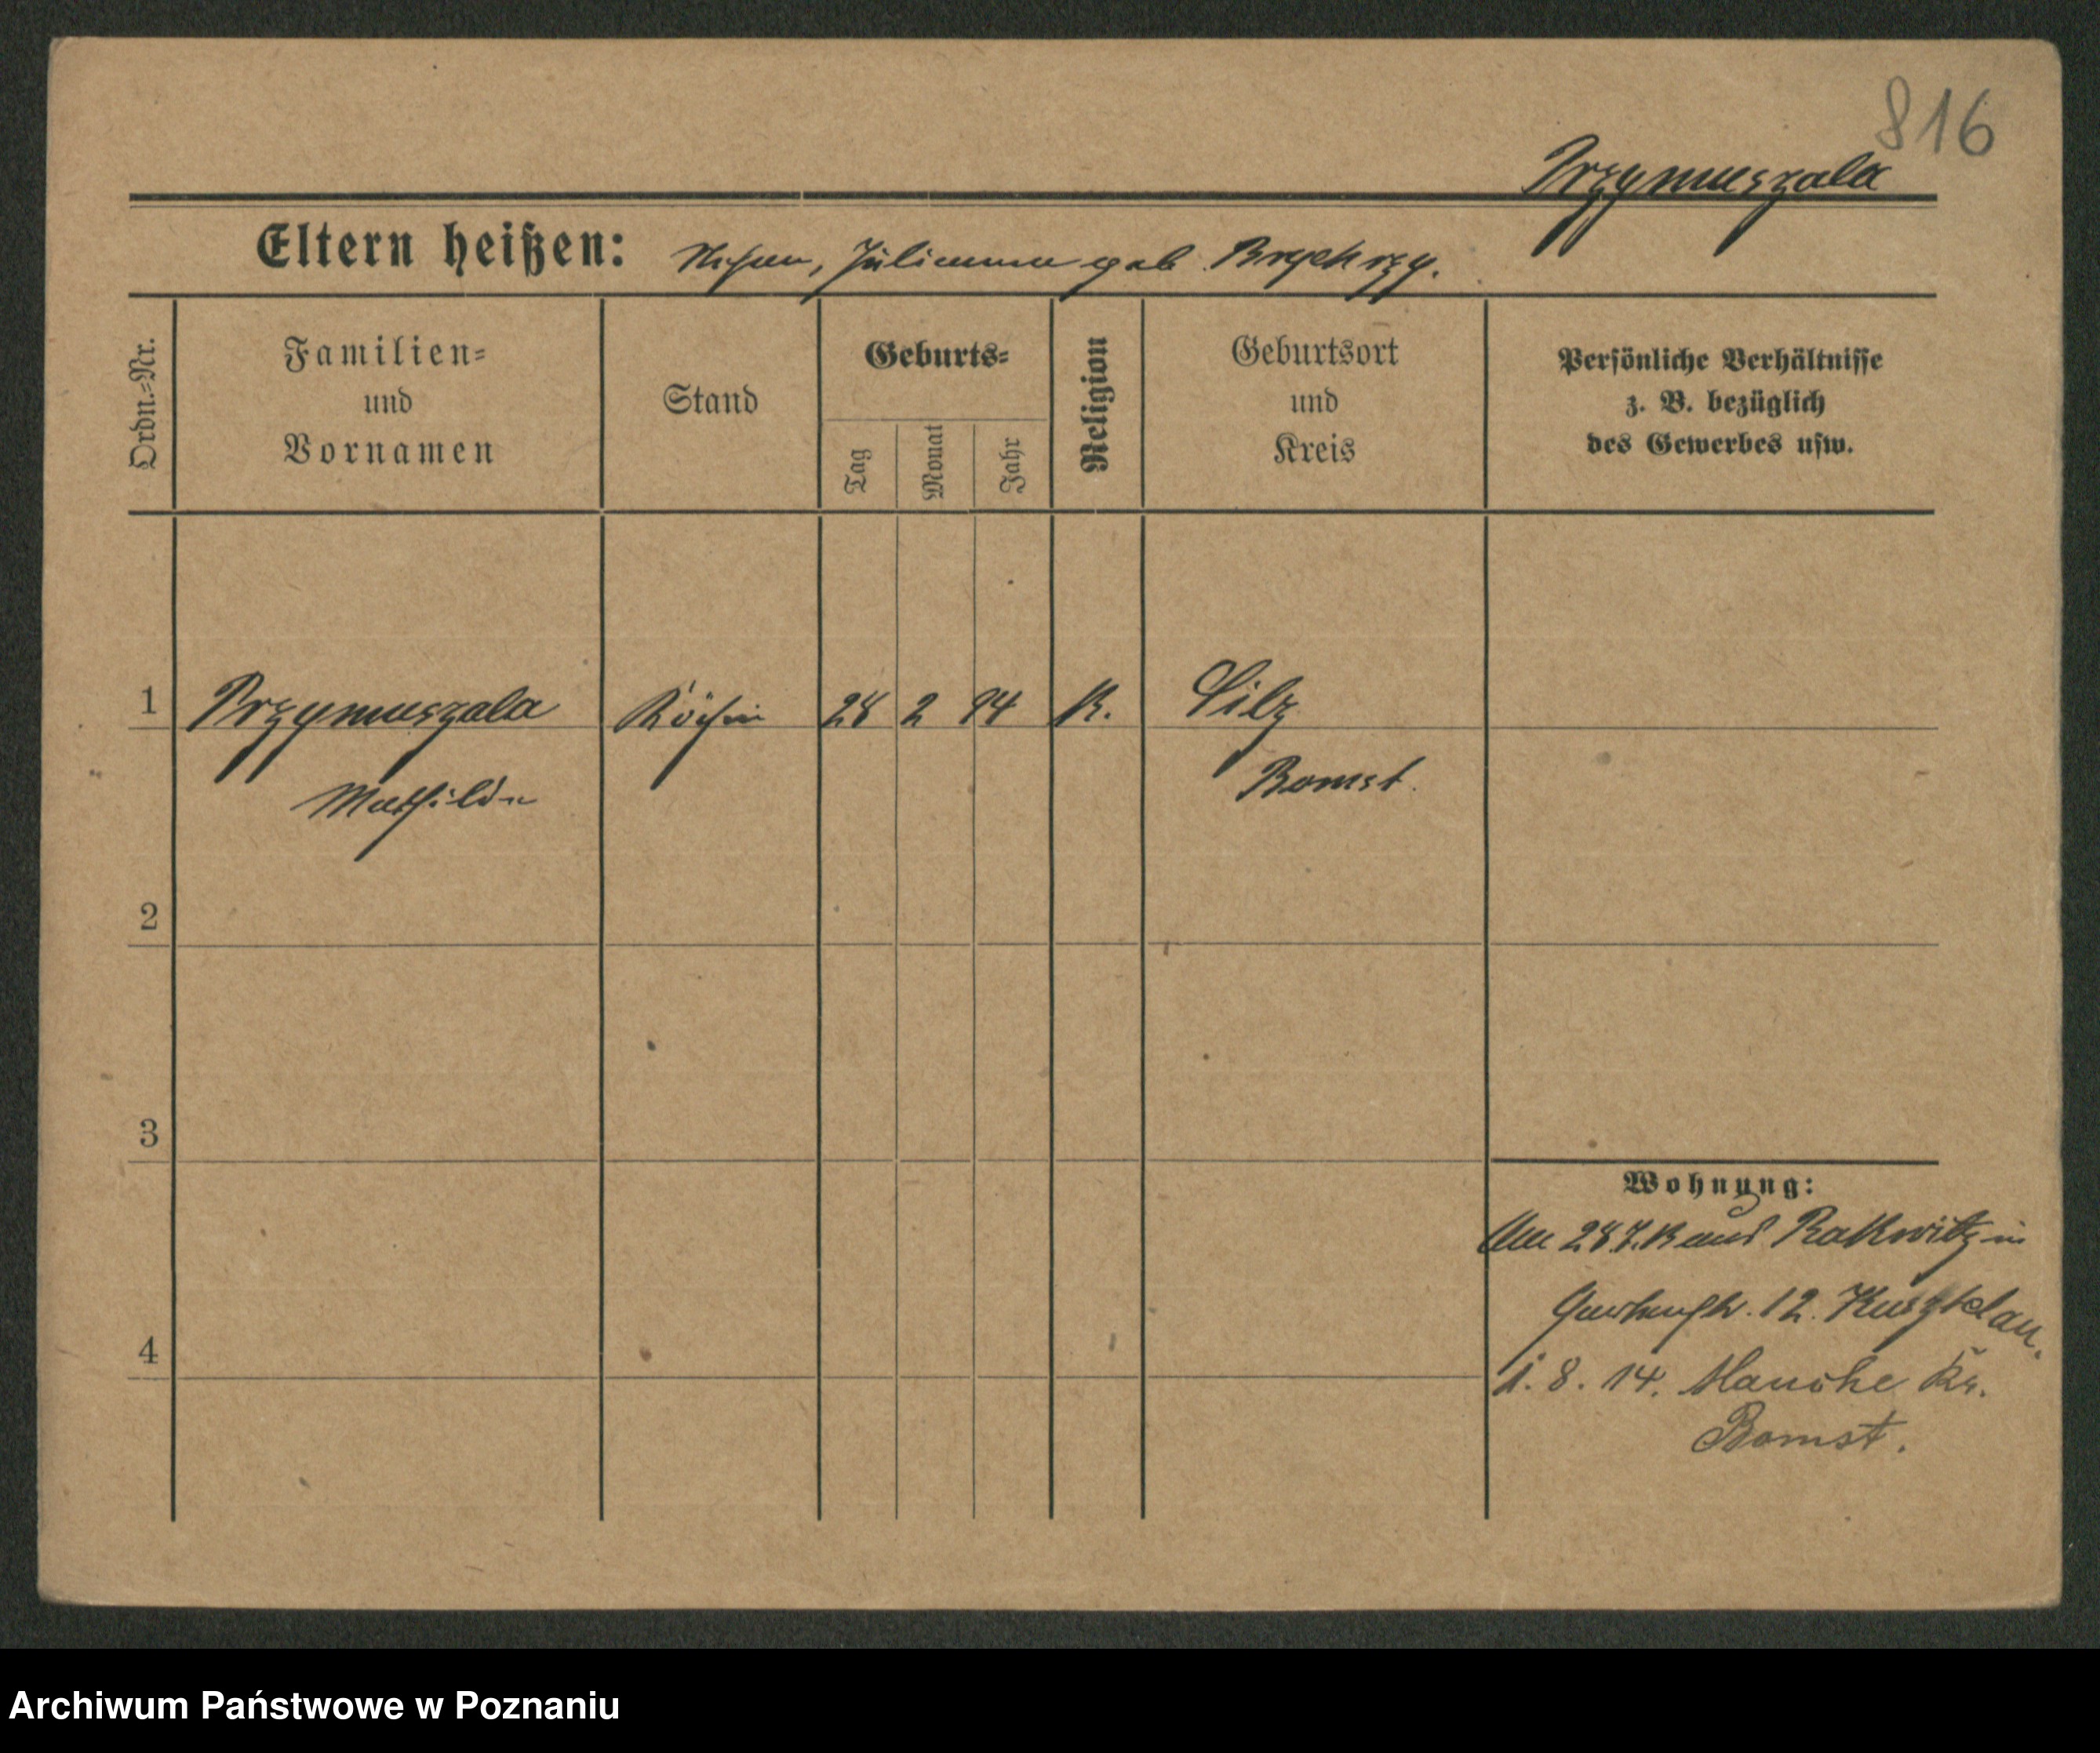 816
Przymuszala
Eltern heißen: Stephan, Julianna geb. Brychczy.
Ordn.=Nr.
Familien=
und
Vornamen
Stand
Geburts=
Tag
Monat
Jahr
Religion
Geburtsort
und
Kreis
Persönliche Verhältnisse
z. B. bezüglich
des Gewerbes usw.
1 Przymuszala Köchin 28 2 94 K. Silz
Mathilde Bomst.
2
3
4
Wohnung:
Am 28 7. 13 aus Rakwitz in
12.
1. 8. 14. Mauche Kr.
Bomst.
Archiwum Państwowe w Poznaniu